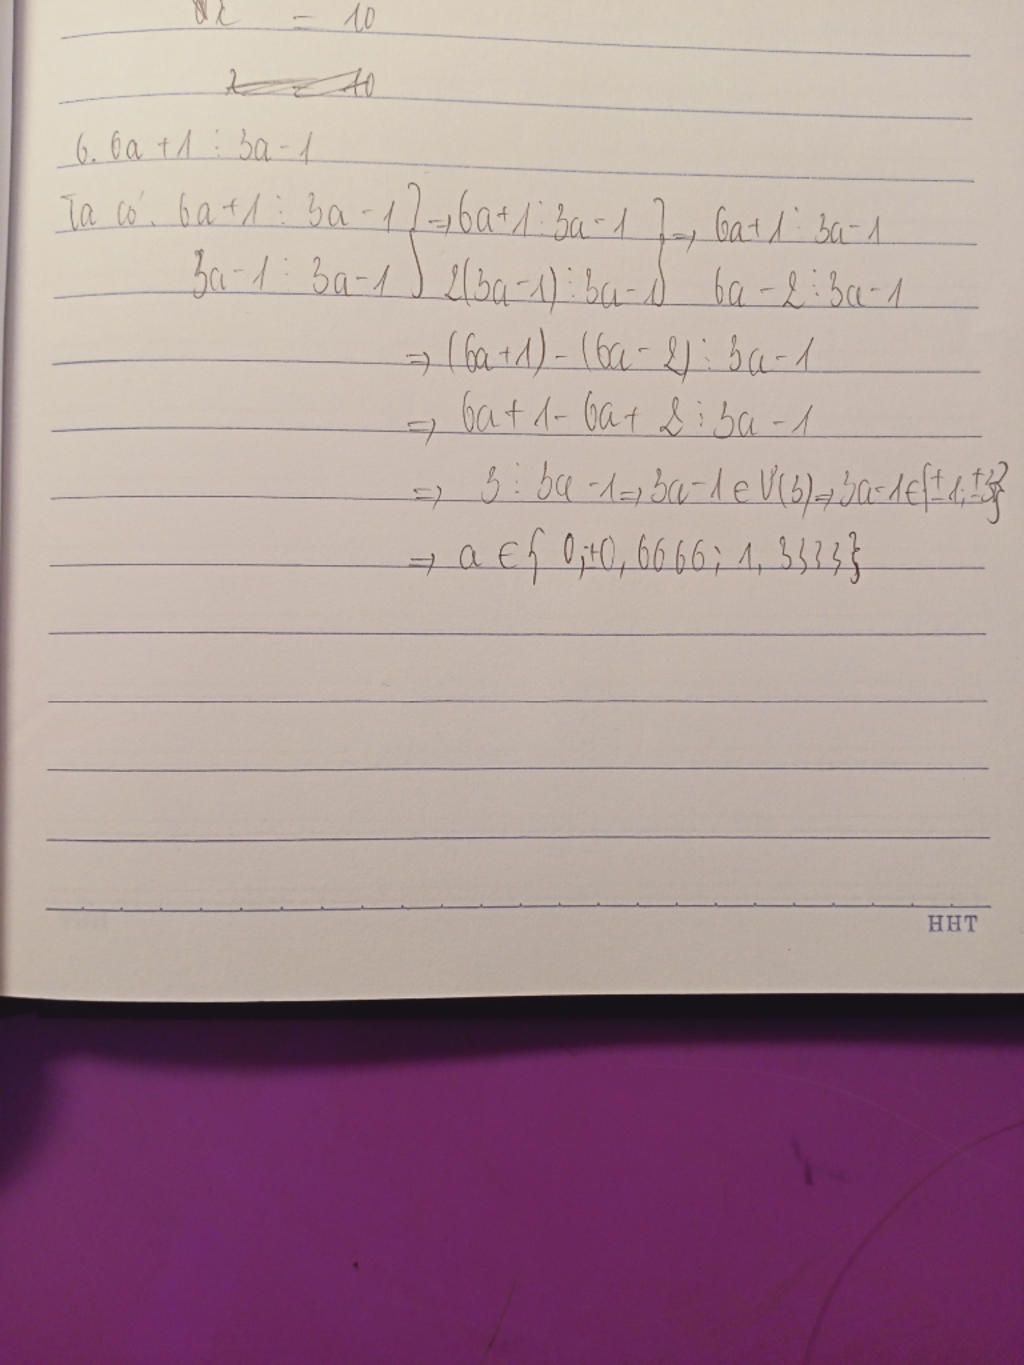 = 10
6. 6a + 1 ⋮ 3a - 1
Ta có: 6a + 1 ⋮ 3a - 1 } => 6a + 1 ⋮ 3a - 1 } => 6a + 1 ⋮ 3a - 1
3a - 1 ⋮ 3a - 1 } 2(3a - 1) ⋮ 3a - 1 } 6a - 2 ⋮ 3a - 1
=> (6a + 1) - (6a - 2) ⋮ 3a - 1
=> 6a + 1 - 6a + 2 ⋮ 3a - 1
=> 3 ⋮ 3a - 1 => 3a - 1 ∈ Ư(3) => 3a - 1 ∈ {±1; ±3}
=> a ∈ { 0; ±0,6666; 1,3333}
HHT